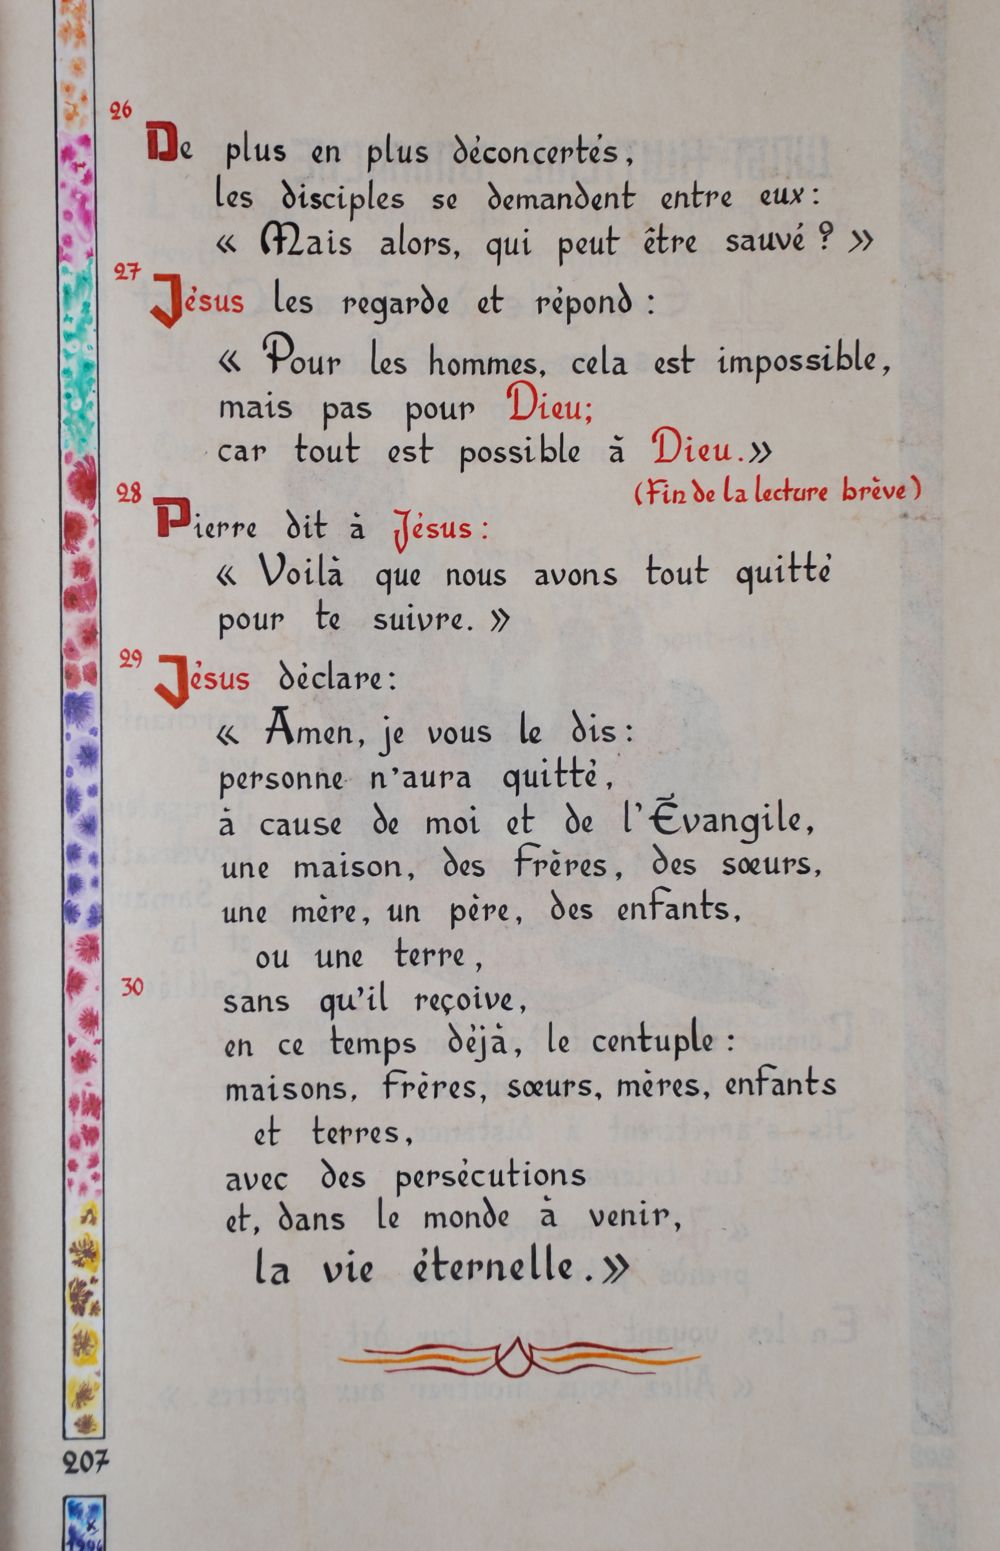 26
De plus en plus déconcertés,
les disciples se demandent entre eux :
« Mais alors, qui peut être sauvé ? »
27
Jésus les regarde et répond :
« Pour les hommes, cela est impossible,
mais pas pour Dieu;
car tout est possible à Dieu. »
(Fin de la lecture brève)
28
Pierre dit à Jésus :
« Voilà que nous avons tout quitté
pour te suivre. »
29
Jésus déclare :
« Amen, je vous le dis :
personne n'aura quitté,
à cause de moi et de l'Évangile,
une maison, des frères, des sœurs,
une mère, un père, des enfants,
ou une terre,
30
sans qu'il reçoive,
en ce temps déjà, le centuple :
maisons, frères, sœurs, mères, enfants
et terres,
avec des persécutions
et, dans le monde à venir,
la vie éternelle. »
207